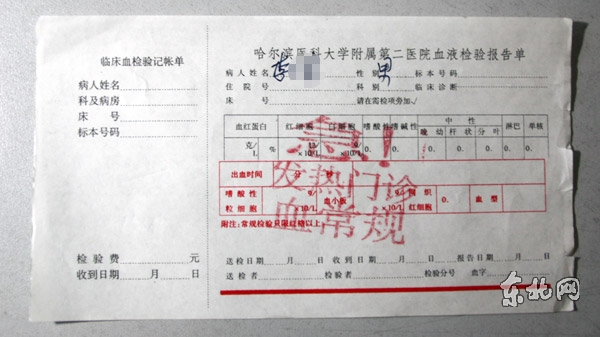 临床血检验记帐单
病人姓名
科及病房
床 号
标本号码
检 验 费 元
收到日期 月 日
哈尔滨医科大学附属第二医院血液检验报告单
病人姓名 李 性 别 男 标本号码
住 院 号 科 别 临床诊断
床 号 请在需检项旁加√
血红蛋白 红细胞 白细胞 嗜酸性 嗜碱性 中 性 淋巴 单核
幼 杆状 分叶
克/L % 12/×10/L 9/×10/L 0. 0. 0. 0. 0. 0. 0.
急!
发热门诊
血常规
出血时间 分 秒
嗜酸性粒细胞 9/×10/L 血小板 9/×10/L 网织红细胞 0. 血 型
附注:常规检验只限红格以上
送检日期 月 日 收到日期 月 日 报告日期 月 日
送 检 者 检验者 检验分号 血字
东北网